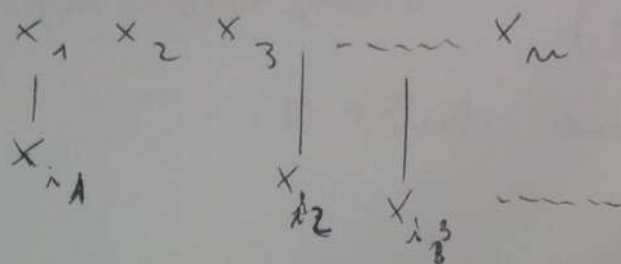 x₁ x₂ x₃ ----- xₙ
x_{i_1} x_{i_2} x_{i_3} -----